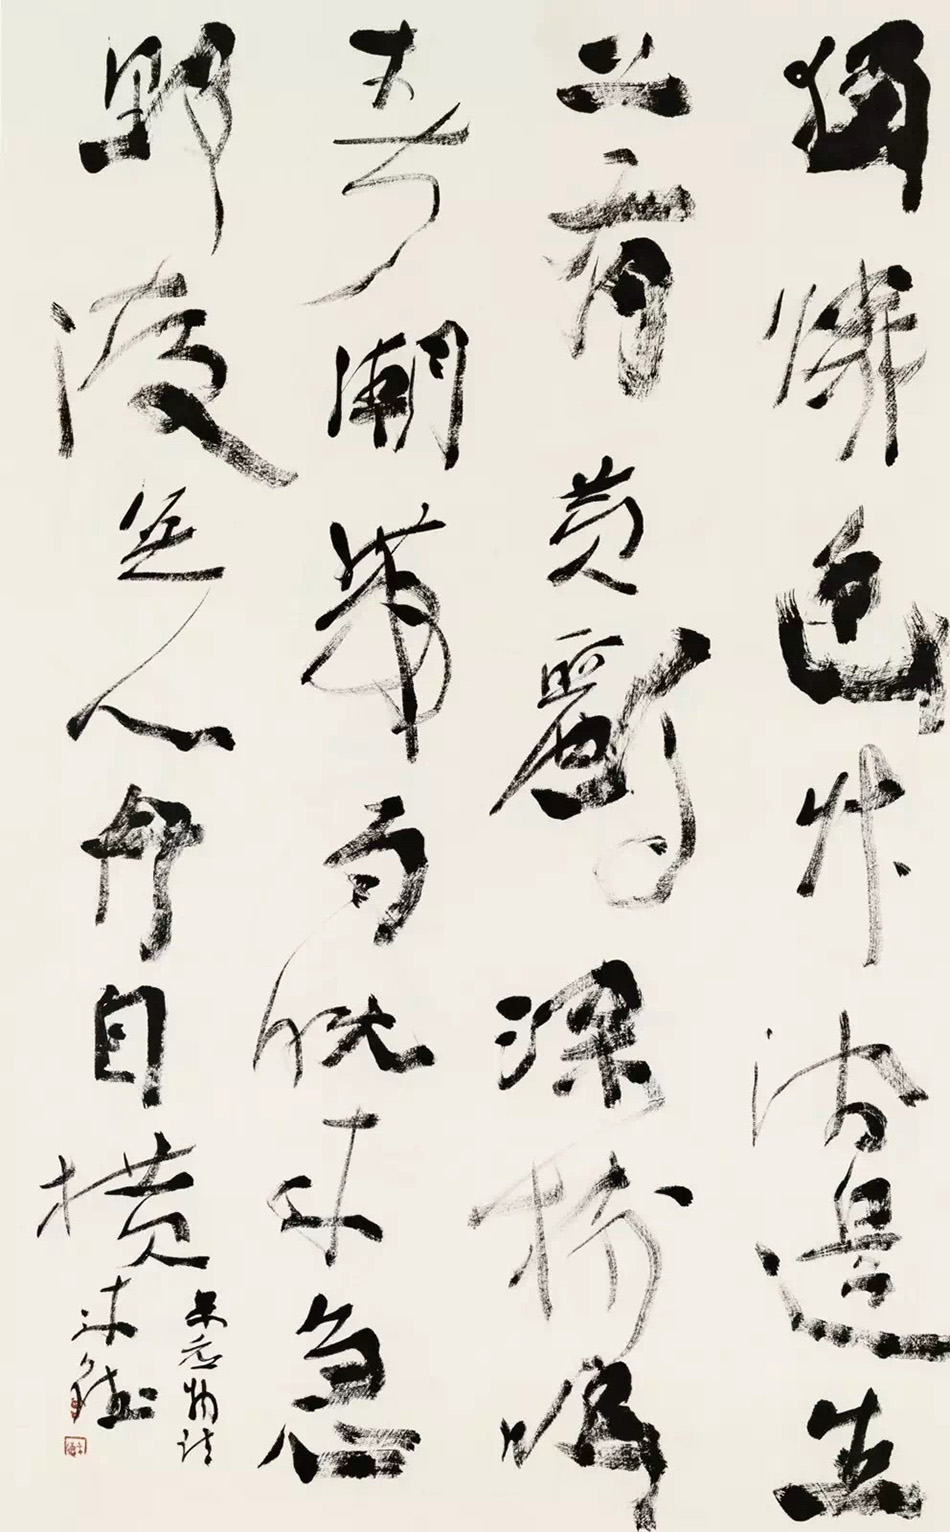 獨憐幽艸澗邊生
上有黄鸝深樹鳴
春潮帶雨晚来急
野渡無人舟自横
韋應物詩